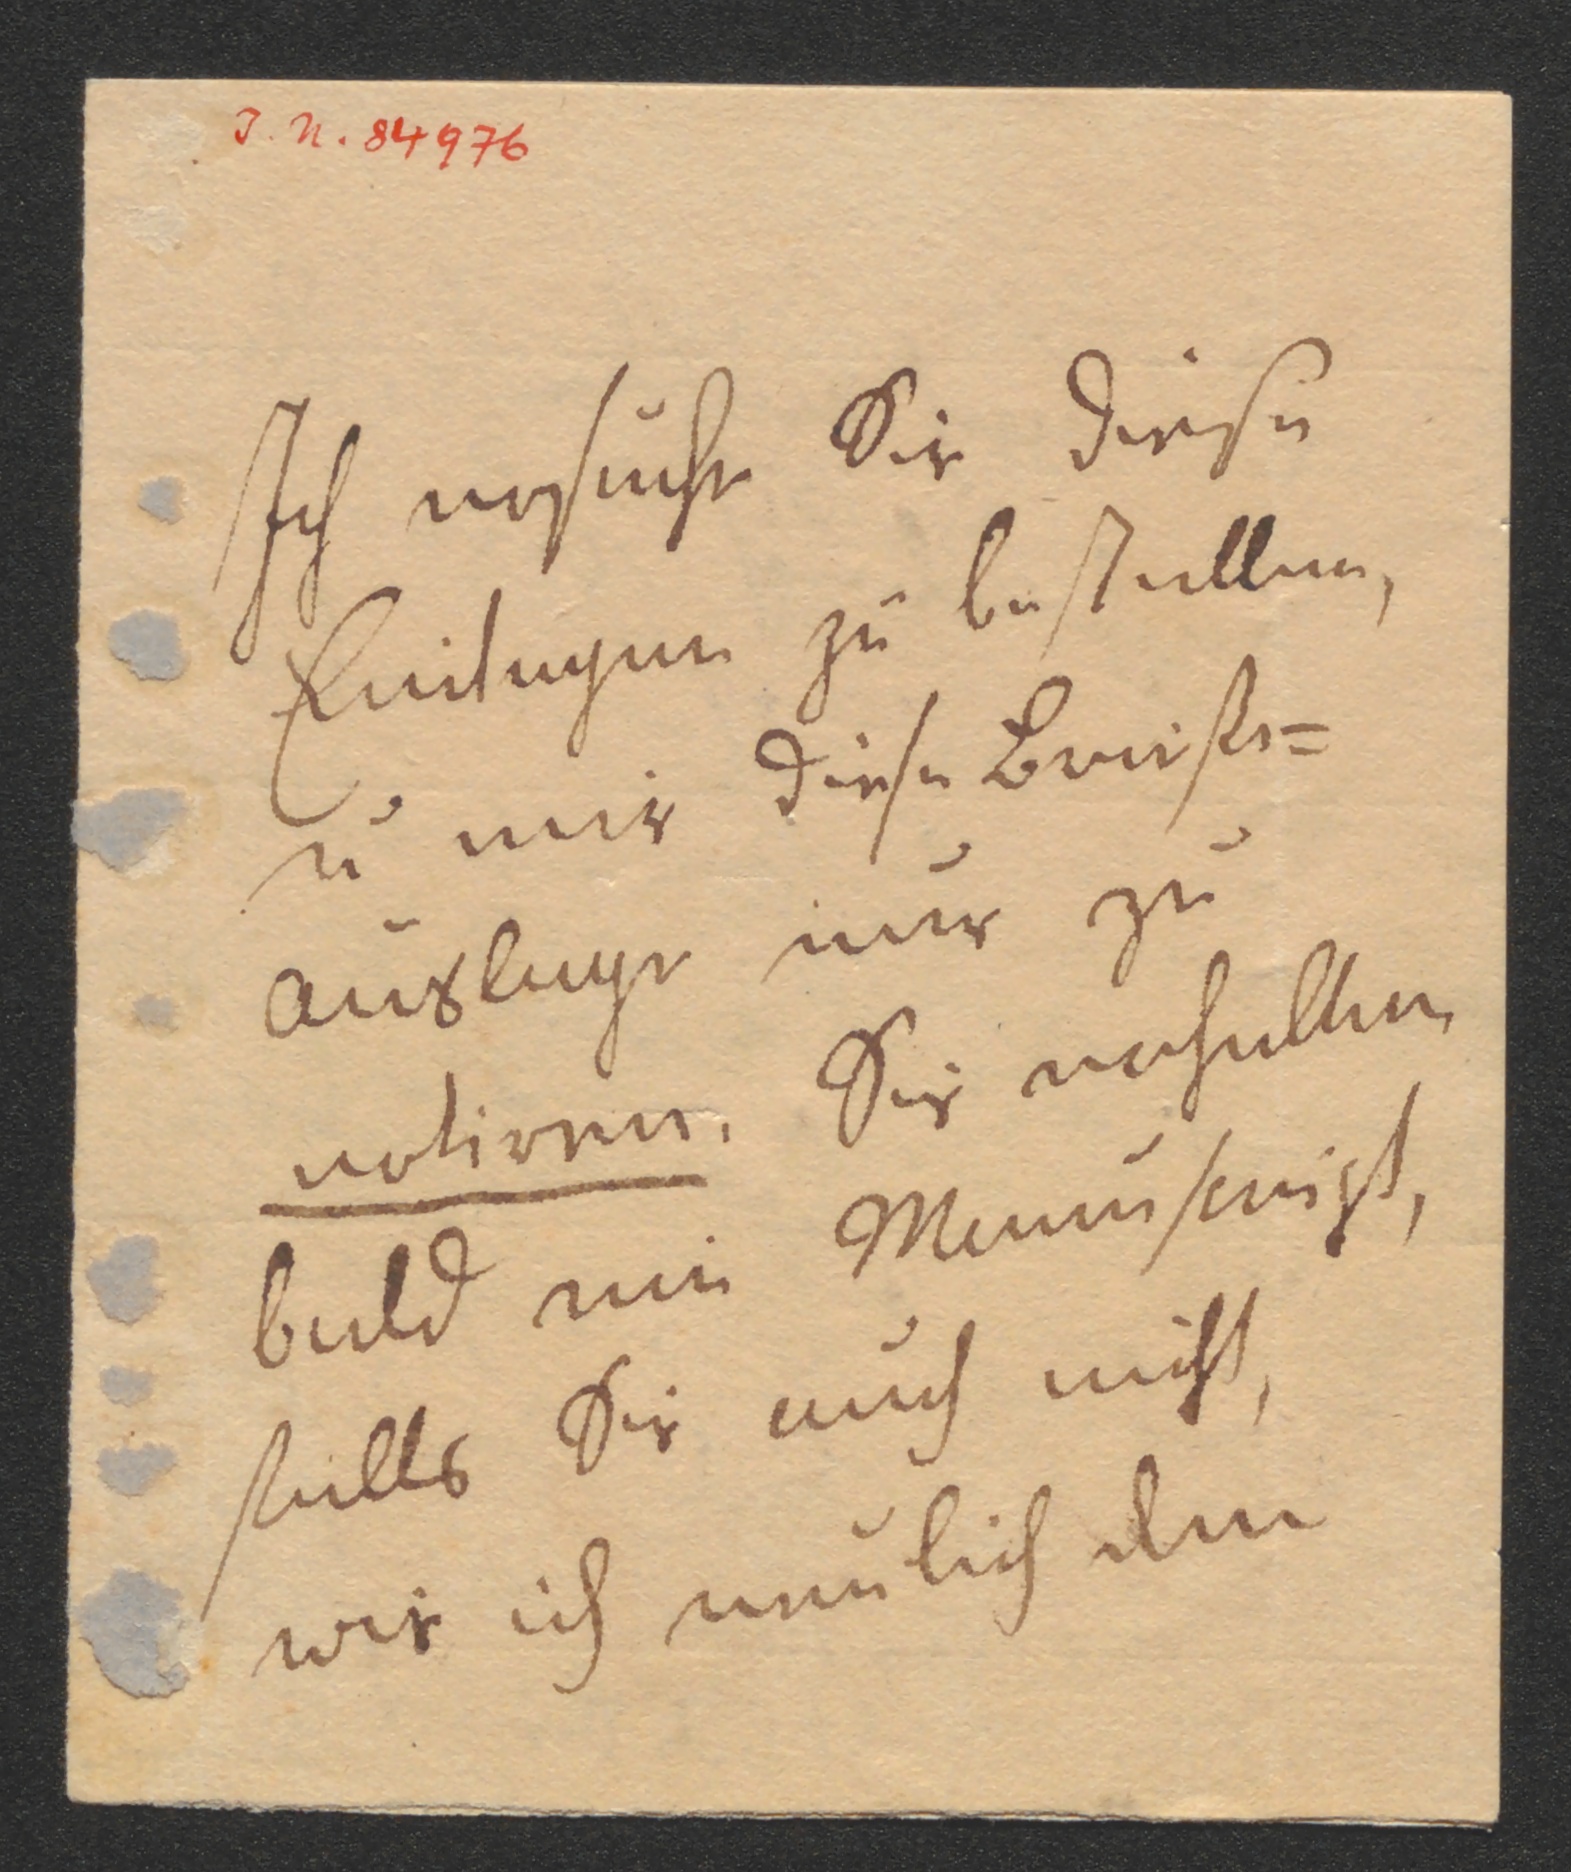 J. N. 84976
Ich ersuche Sie diese
Einlagen zu bestellen,
u mir diese Briefe=
auslage nur zu
notiren. Sie erhalten
bald ein Manuscript,
Sie auch nicht,
wie ich neulich den